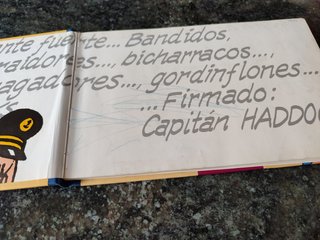 ante fuerte... Bandidos,
raidores..., bicharracos...,
agadores..., gordinflones...
...Firmado:
Capitán HADDO